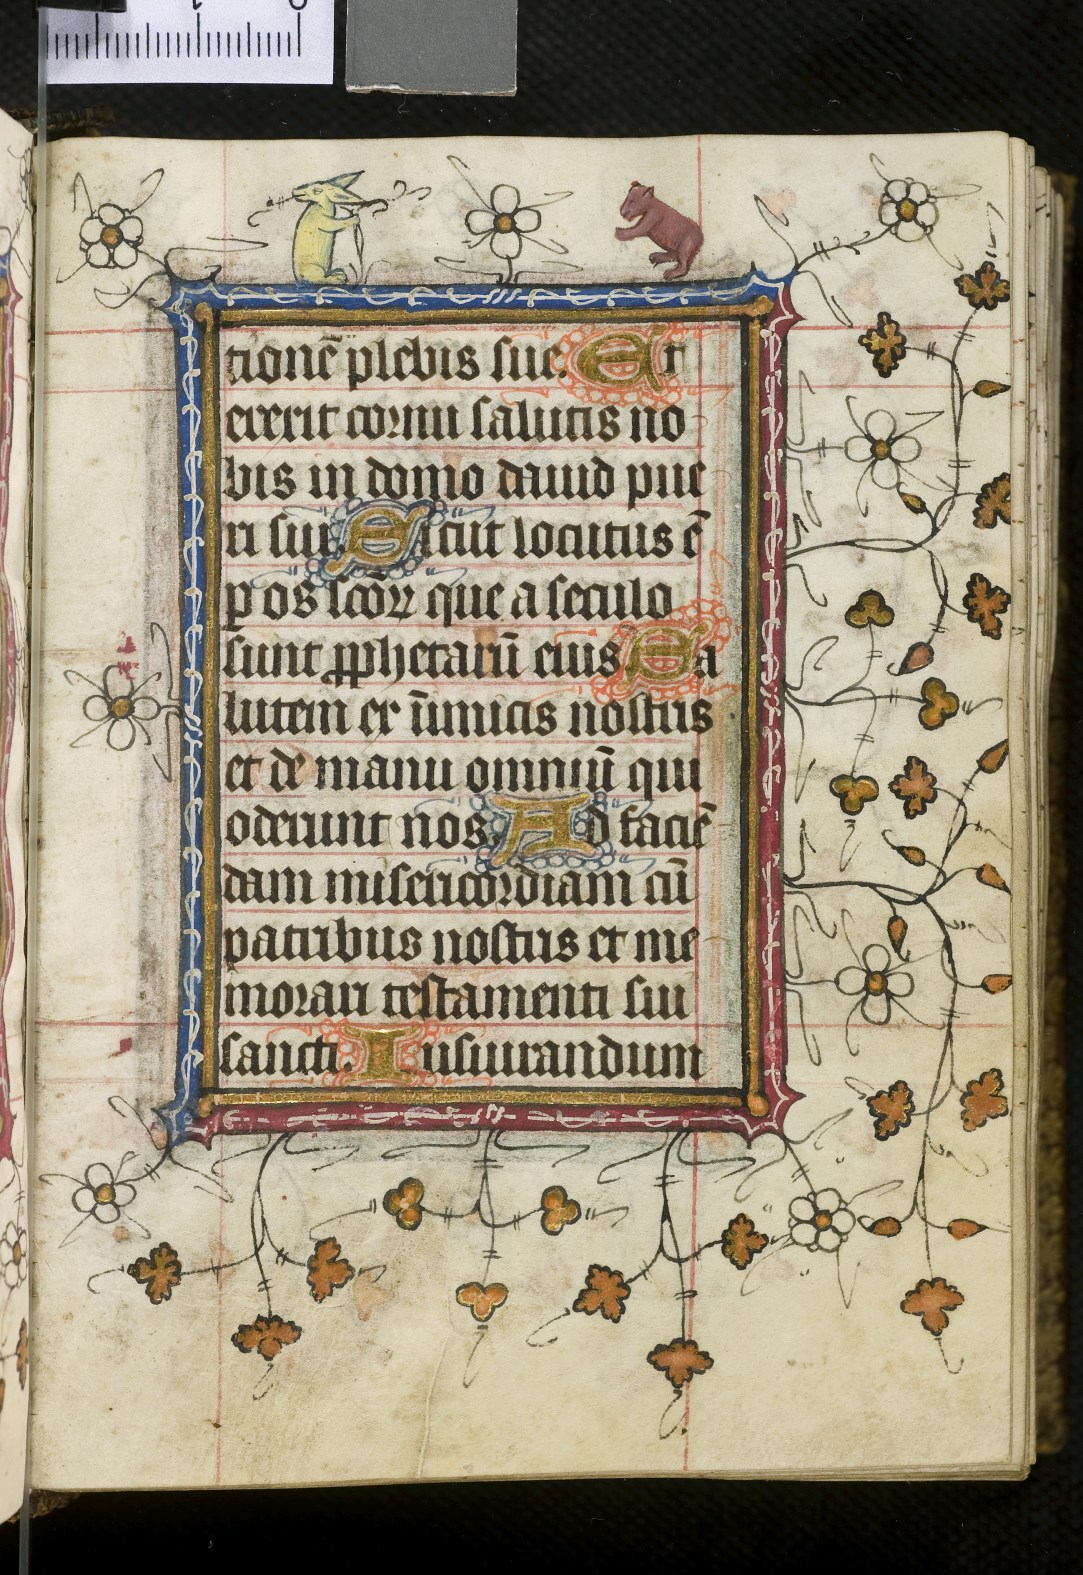 0 1
tionē plebis sue. Et
erexit cornu salutis no
bis in domo dauid pue
ri sui. Sicut locutus ē
p os scōꝝ que a seculo
sunt ꝓphetarū eius Sa
lutem ex īimicis nostris
et de manu omniū qui
oderunt nos. Ad faciē
dam misericordiam cū
patribus nostris et me
morari testamenti sui
sancti. Iusiurandum